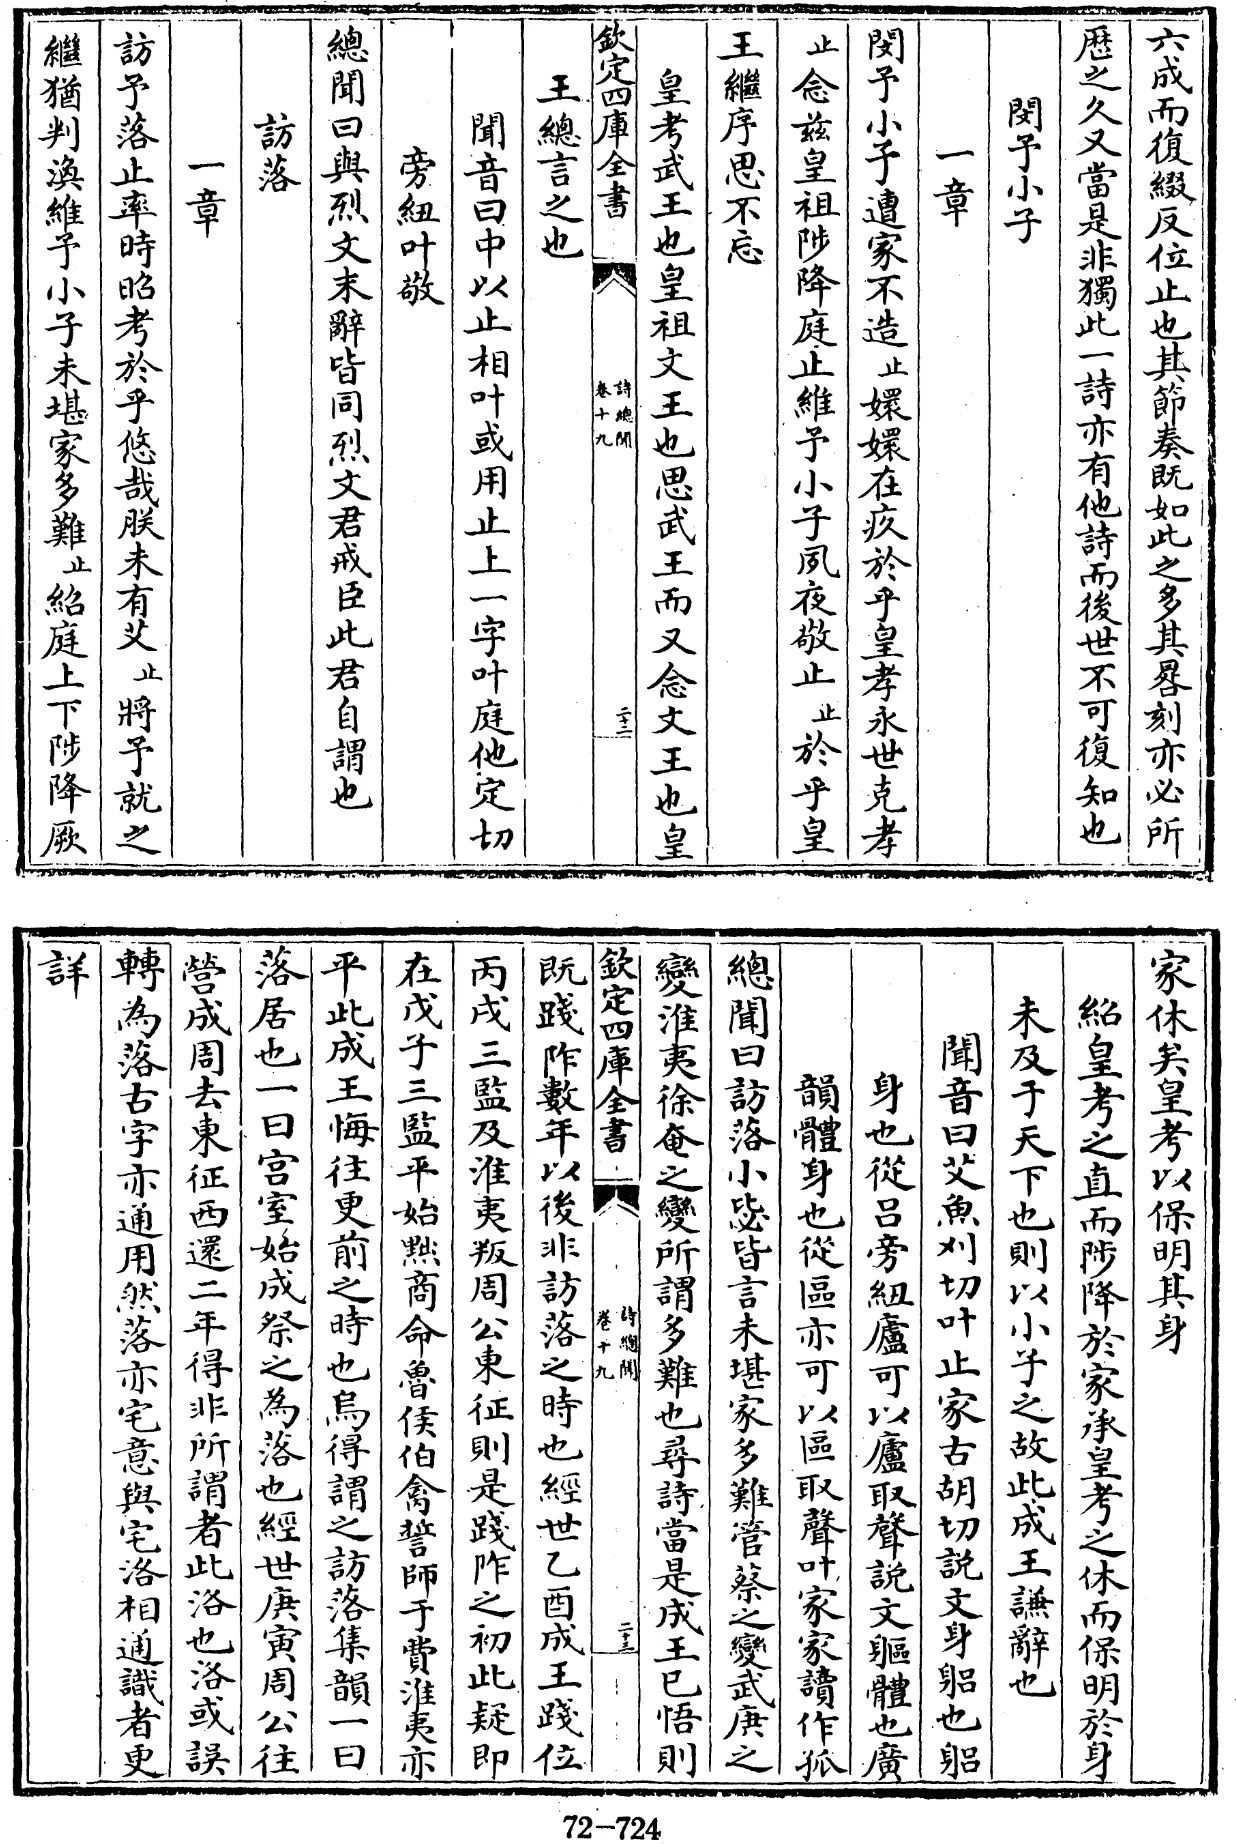 六成而復綴反位止也其節奏既如此之多其晷刻亦必所
歷之久又當是非獨此一詩亦有他詩而後世不可復知也
閔予小子
一章
閔予小子遭家不造止嬛嬛在疚於乎皇考永世克孝
止念茲皇祖陟降庭止維予小子夙夜敬止止於乎皇
王繼序思不忘
皇考武王也皇祖文王也思武王而又念文王也皇
欽定四庫全書
詩總聞
卷十九
二十二
王總言之也
聞音曰中以止相叶或用止上一字叶庭他定切
旁紐叶敬
總聞曰與烈文末辭皆同烈文君戒臣此君自謂也
訪落
一章
訪予落止率時昭考於乎悠哉朕未有艾止將予就之
繼猶判渙維予小子未堪家多難止紹庭上下陟降厥
家休矣皇考以保明其身
紹皇考之直而陟降於家承皇考之休而保明於身
未及于天下也則以小子之故此成王謙辭也
聞音曰艾魚刈切叶止家古胡切説文身躳也躳
身也從吕旁紐廬可以廬取聲説文軀體也廣
韻體身也從區亦可以區取聲叶家家讀作孤
總聞曰訪落小毖皆言未堪家多難管蔡之變武庚之
變淮夷徐奄之變所謂多難也尋詩當是成王已悟則
欽定四庫全書
詩總聞
卷十九
二十三
既踐阼數年以後非訪落之時也經世乙酉成王踐位
丙戌三監及淮夷叛周公東征則是踐阼之初此疑即
在戊子三監平始黜商命魯侯伯禽誓師于費淮夷亦
平此成王悔往更前之時也烏得謂之訪落集韻一曰
落居也一曰宫室始成祭之為落也經世庚寅周公往
營成周去東征西還二年得非所謂者此洛也洛或誤
轉為落古字亦通用然落亦宅意與宅洛相通識者更
詳
72-724